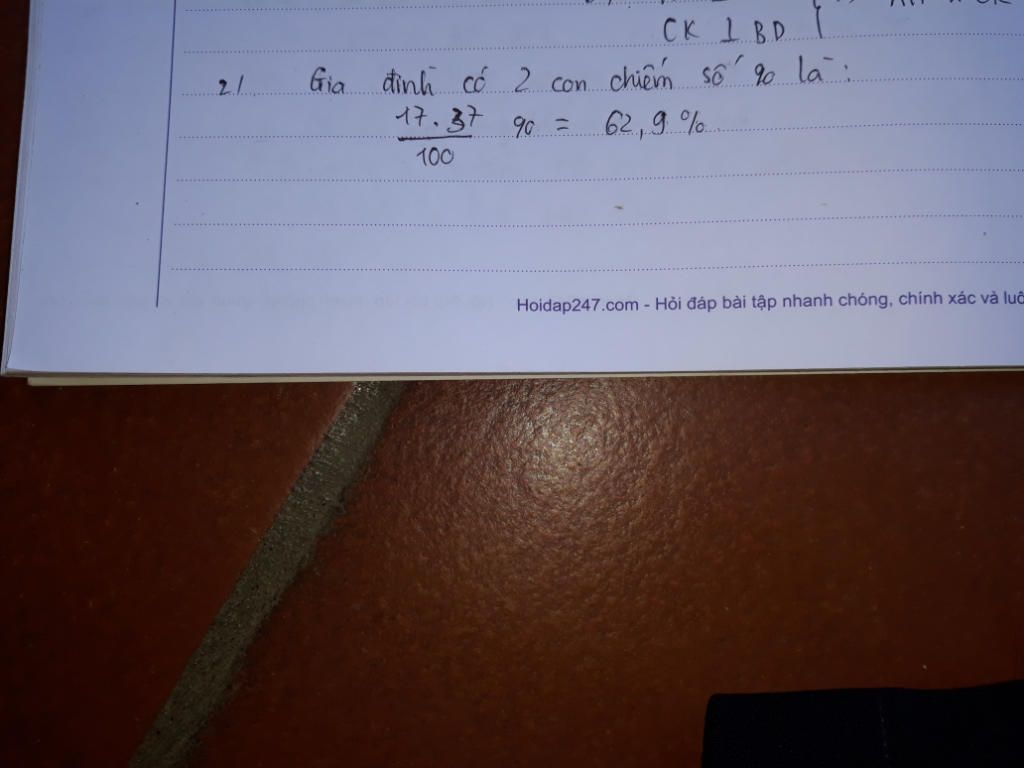 CK ⊥ BD
2/ Gia đình có 2 con chiếm số % là:
17.37 % = 62,9%
100
Hoidap247.com - Hỏi đáp bài tập nhanh chóng, chính xác và luô